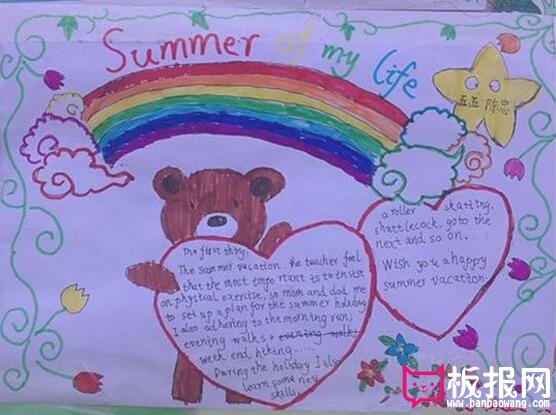 Summer of my life
五五 陈忠
The first thing,
The summer vacation, the teacher feel
that the most emportant is to insist
on physical exercise, so mom and dad me
to set up a plan for the summer holiday,
I also adhering to the morning run;
evening walks, evening walks
week end hiking......
During the holiday I also
learn some new
skills,
a roller skating.
shuttlecock. go to the
next and so on.
Wish you a happy
summer vacation.
板报网
www.banbaowang.com